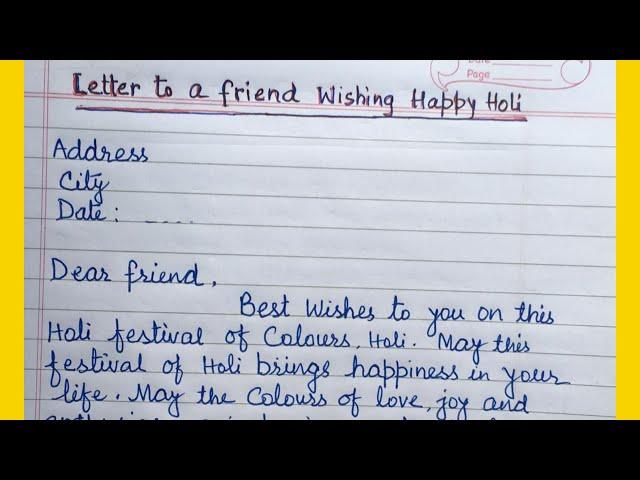 Date
Page
Letter to a friend Wishing Happy Holi
Address
City
Date : ....
Dear friend,
Best Wishes to you on this
Holi festival of Colours, Holi. May this
festival of Holi brings happiness in your
life. May the Colours of love, joy and